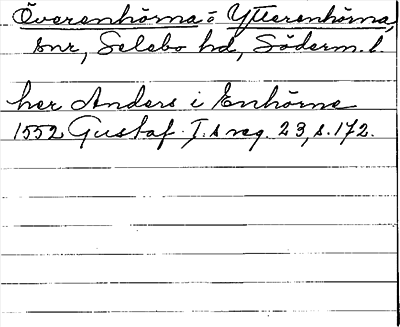 Överenhörna= Ytterenhörna,
snr, Selebo hd, Söderm. l.
her Anders i Enhörne
1552 Gustaf I.s reg. 23, s. 172.